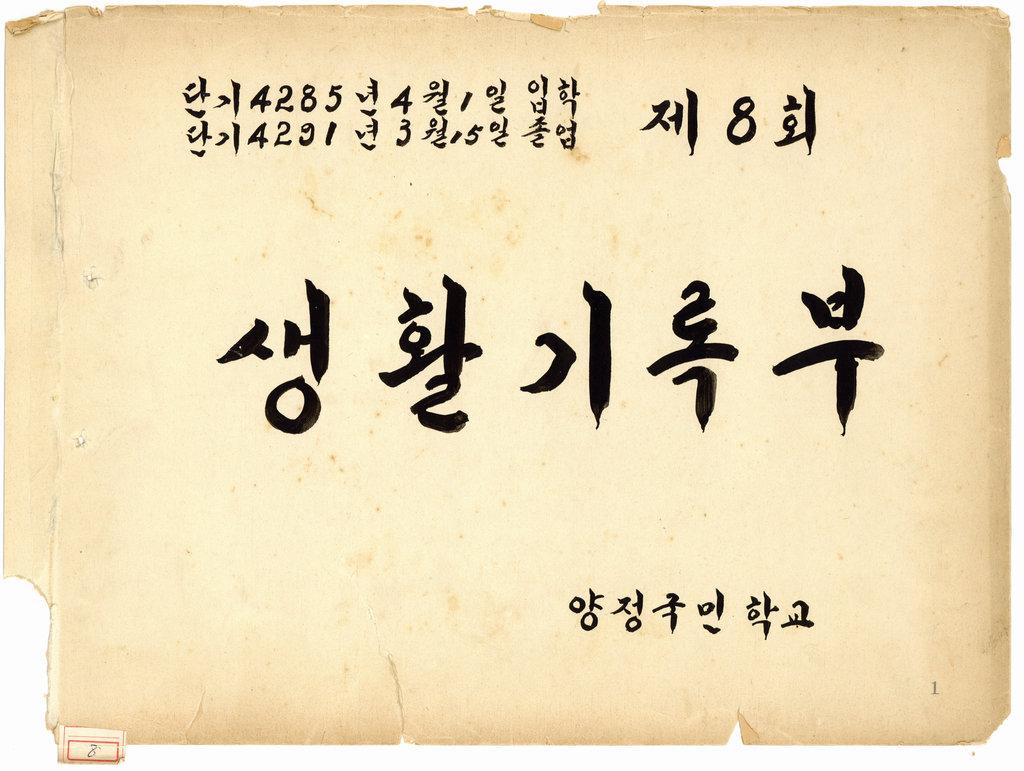 단기4285년 4월 1일 입학
단기4291년 3월15일 졸업
제 8 회
생활기록부
양정국민학교
1
8